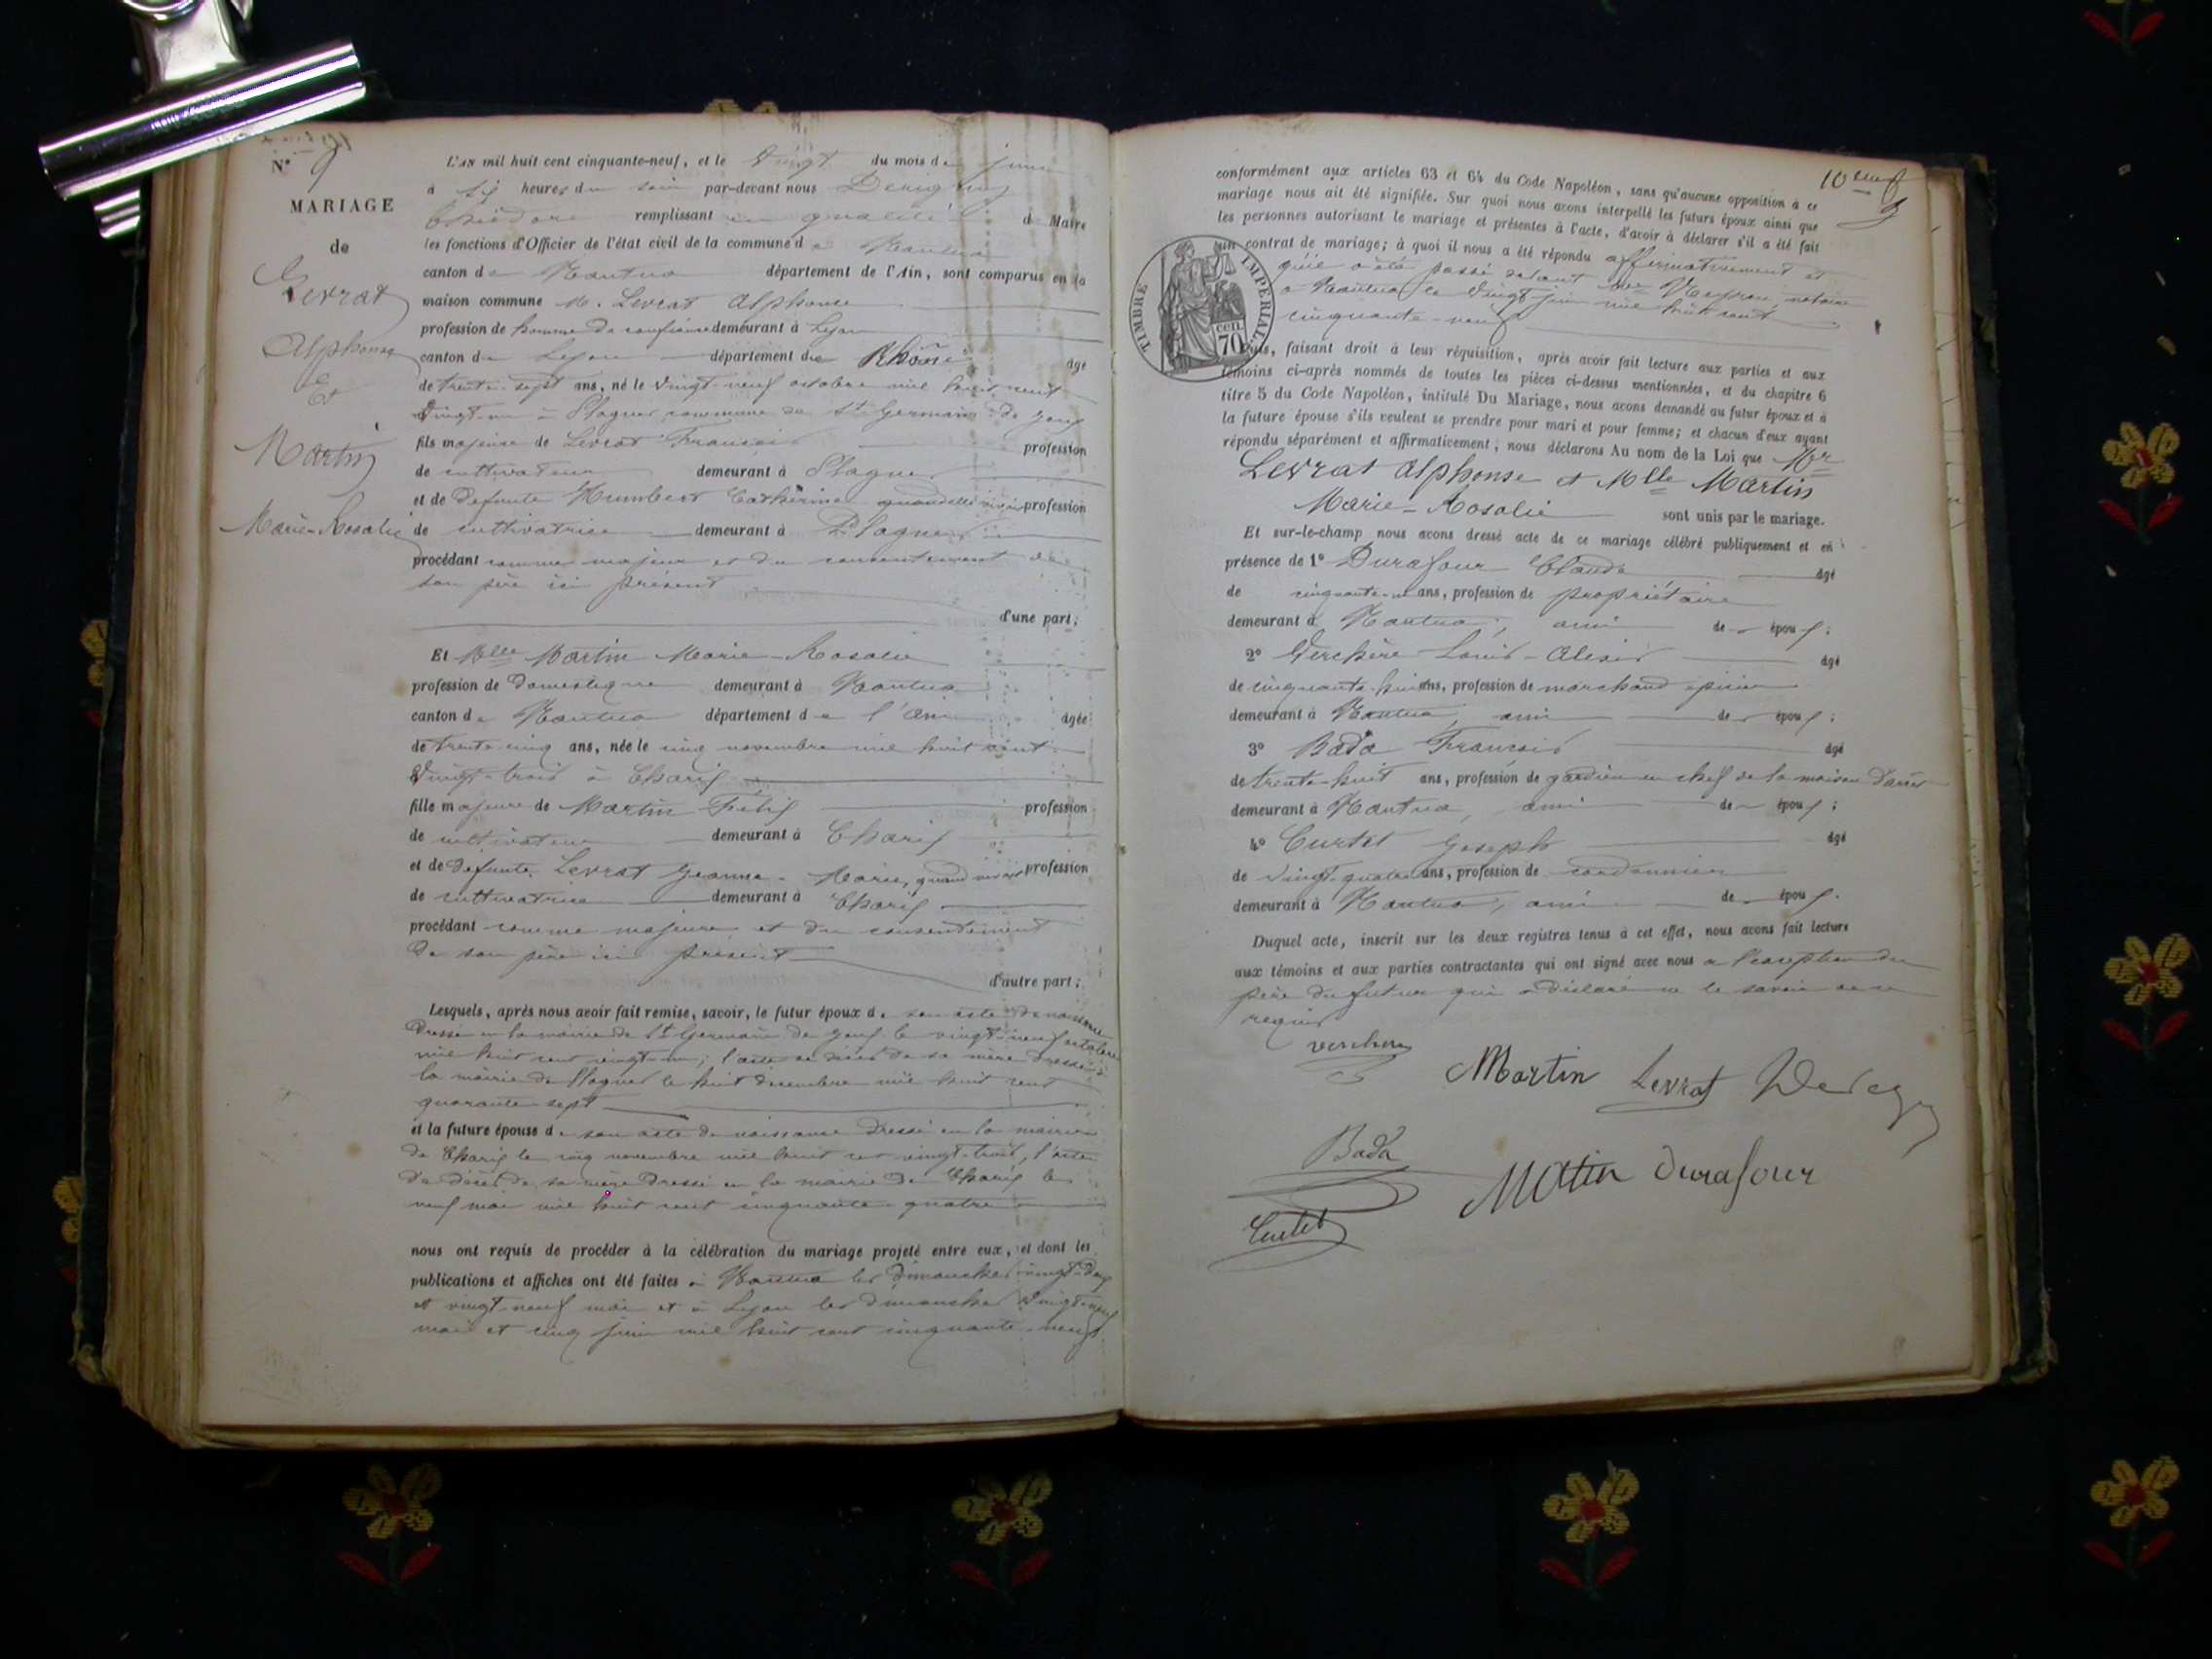 N° 9
MARIAGE
de
Levrat
Alphonse
Et
Martin
Marie-Rosalie
L'AN mil huit cent cinquante-neuf, et le Vingt du mois de juin
à six heures du soir par-devant nous
remplissant en qualité de Maire
les fonctions d'Officier de l'état civil de la commune de Nantua
canton de Nantua département de l'Ain, sont comparus en la
maison commune M. Levrat Alphonse
profession de homme de confiance demeurant à Lyon
canton de Lyon département du Rhône âgé
de trente-sept ans, né le vingt-neuf octobre mil huit cent
vingt-un à Plagnes commune de St Germain de Joux
fils majeur de Levrat François profession
de cultivateur demeurant à Plagnes
et de défunte Humbert Catherine quand elle vivait profession
de cultivatrice demeurant à Plagnes
procédant comme majeur et du consentement de
son père ici présent
d'une part;
Et Melle Martin Marie-Rosalie
profession de domestique demeurant à Nantua
canton de Nantua département de l'Ain âgée
de trente-cinq ans, née le cinq novembre mil huit cent
vingt-trois à Charix
fille majeure de Martin Félix profession
de cultivateur demeurant à Charix
et de défunte Levrat Jeanne-Marie, quand vivait profession
de cultivatrice demeurant à Charix
procédant comme majeure et du consentement
de son père ici présent
d'autre part;
Lesquels, après nous avoir fait remise, savoir, le futur époux de son acte de naissance
dressé en la mairie de St Germain de Joux le vingt-neuf octobre
mil huit cent vingt-un; l'acte de décès de sa mère dressé à
la mairie de Plagnes le huit décembre mil huit cent
quarante-sept
et la future épouse de son acte de naissance dressé en la mairie
de Charix le cinq novembre mil huit cent vingt-trois, l'acte
de décès de sa mère dressé en la mairie de Charix le
neuf mai mil huit cent cinquante-quatre
nous ont requis de procéder à la célébration du mariage projeté entre eux, et dont les
publications et affiches ont été faites à Nantua les dimanches vingt-deux
et vingt-neuf mai et à Lyon les dimanches vingt-neuf
mai et cinq juin mil huit cent cinquante-neuf
conformément aux articles 63 et 64 du Code Napoléon, sans qu'aucune opposition à ce
mariage nous ait été signifiée. Sur quoi nous avons interpellé les futurs époux ainsi que
les personnes autorisant le mariage et présentes à l'acte, d'avoir à déclarer s'il a été fait
un contrat de mariage; à quoi il nous a été répondu affirmativement et
qu'il a été passé devant Me notaire
à Nantua le vingt juin mil huit cent
cinquante-neuf
TIMBRE IMPERIAL
70 cen.
Puis, faisant droit à leur réquisition, après avoir fait lecture aux parties et aux
témoins ci-après nommés de toutes les pièces ci-dessus mentionnées, et du chapitre 6
titre 5 du Code Napoléon, intitulé Du Mariage, nous avons demandé au futur époux et à
la future épouse s'ils veulent se prendre pour mari et pour femme; et chacun d'eux ayant
répondu séparément et affirmativement, nous déclarons Au nom de la Loi que Mr
Levrat Alphonse et Melle Martin
Marie-Rosalie sont unis par le mariage.
Et sur-le-champ nous avons dressé acte de ce mariage célébré publiquement et en
présence de 1° Durafour Claude âgé
de cinquante-un ans, profession de propriétaire
demeurant à Nantua, ami des époux;
2° Verchère Louis-Alexis âgé
de cinquante-huit ans, profession de marchand épicier
demeurant à Nantua, ami des époux;
3° Bada François âgé
de trente-huit ans, profession de gardien en chef de la maison d'arrêt
demeurant à Nantua, ami des époux;
4° Curtet Joseph âgé
de vingt-quatre ans, profession de cordonnier
demeurant à Nantua, ami des époux.
Duquel acte, inscrit sur les deux registres tenus à cet effet, nous avons fait lecture
aux témoins et aux parties contractantes qui ont signé avec nous à l'exception du
père du futur qui a déclaré ne le savoir de ce
requis
Verchere
Martin Levrat
Bada
Martin Durafour
Curtet